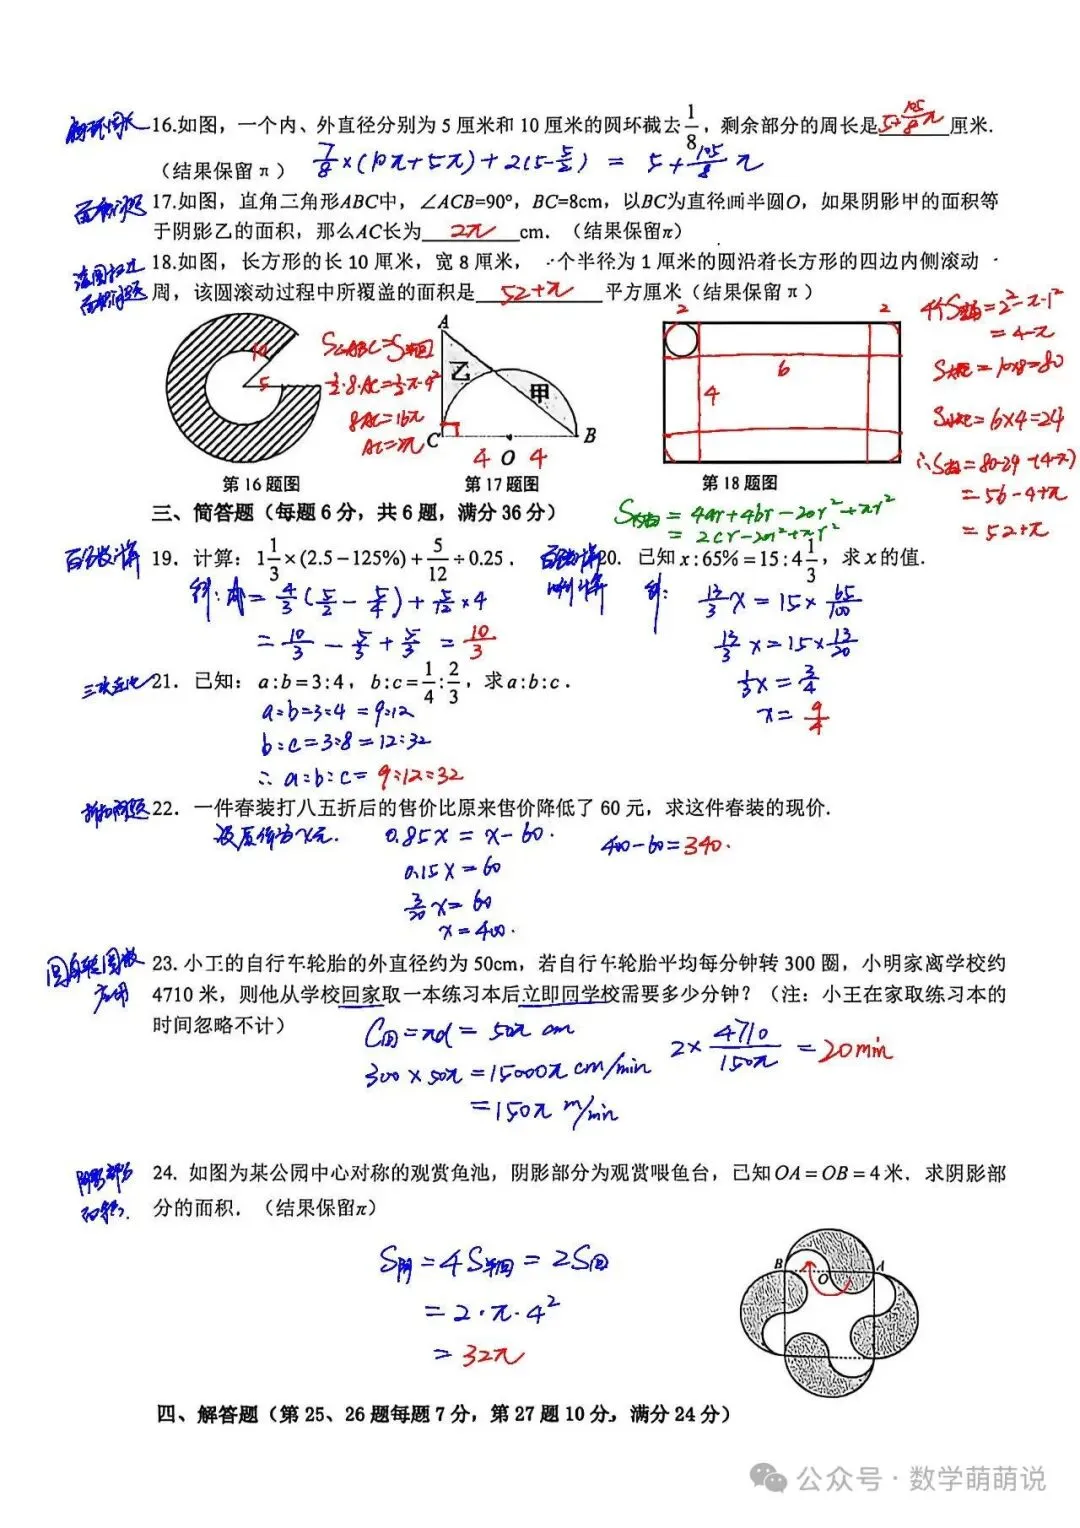 扇环周长 16.如图，一个内、外直径分别为 5 厘米和 10 厘米的圆环截去1/8，剩余部分的周长是 5+105/8π 厘米.
（结果保留π） 7/8×(10π+5π)+2(5-5/2) = 5+105/8 π
面积问题 17.如图，直角三角形ABC中，∠ACB=90°，BC=8cm，以BC为直径画半圆O，如果阴影甲的面积等
于阴影乙的面积，那么AC长为 2π cm.（结果保留π）
18.如图，长方形的长 10 厘米，宽 8 厘米，一个半径为 1 厘米的圆沿着长方形的四边内侧滚动一
面积问题 周，该圆滚动过程中所覆盖的面积是 52+π 平方厘米（结果保留π）
10
5
第 16 题图
S△ABC=S半圆
1/2·8·AC=1/2·π·4²
8AC=16π
AC=2π
A
乙
甲
C
B
4 O 4
第 17 题图
2 2
6
4
第 18 题图
=2²-π·1²
=4-π
=10×8=80
=6×4=24
=80-24-(4-π)
=56-4+π
=52+π
三、简答题（每题 6 分，共 6 题，满分 36 分）
=4ar+4br-20r²+πr²
=2Cr-20r²+πr²
百分数计算 19. 计算：1 1/3×(2.5-125%)+5/12÷0.25．
解：原=4/3(5/2-5/4)+5/12×4
=10/3-5/3+5/3=10/3
百分数计算 20. 已知x:65%=15:4 1/3，求x的值.
比例计算 解：13/3x=15×65/100
13/3x=15×13/20
1/3x=3/4
x=9/4
三次连比 21. 已知：a:b=3:4，b:c=1/4:2/3，求a:b:c．
a:b=3:4=9:12
b:c=3:8=12:32
∴ a:b:c=9:12:32
折扣问题 22. 一件春装打八五折后的售价比原来售价降低了 60 元，求这件春装的现价.
设原价为x元. 0.85x=x-60. 400-60=340.
0.15x=60
3/20x=60
x=400.
应用 23. 小王的自行车轮胎的外直径约为 50cm，若自行车轮胎平均每分钟转 300 圈，小明家离学校约
4710 米，则他从学校回家取一本练习本后立即回学校需要多少分钟？（注：小王在家取练习本的
时间忽略不计）
C圆=πd=50π cm
300×50π=15000π cm/min
=150π m/min
2×4710/150π=20min
阴影部分 24. 如图为某公园中心对称的观赏鱼池，阴影部分为观赏喂鱼台，已知OA=OB=4米．求阴影部
面积. 分的面积．（结果保留π）
S阴=4S半圆=2S圆
=2·π·4²
=32π
B O A
四、解答题（第 25、26 题每题 7 分，第 27 题 10 分，满分 24 分）
公众号·数学萌萌说